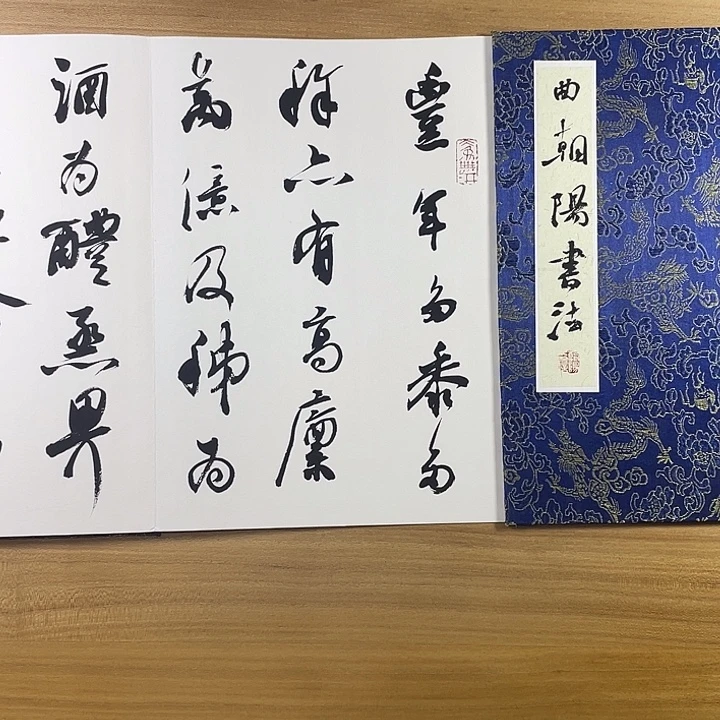 曲朝陽書法
豐年多黍多
稌亦有高廩
萬億及秭为
酒为醴烝畀